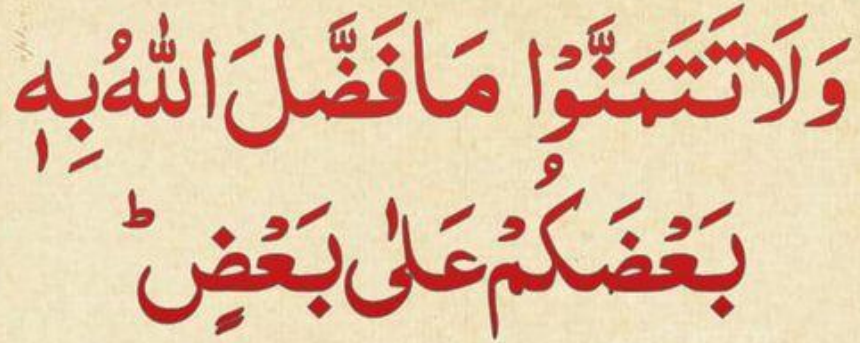 وَلَا تَتَمَنَّوْا مَا فَضَّلَ اللّٰهُ بِهٖ
بَعْضَكُمْ عَلٰى بَعْضٍ ؕ